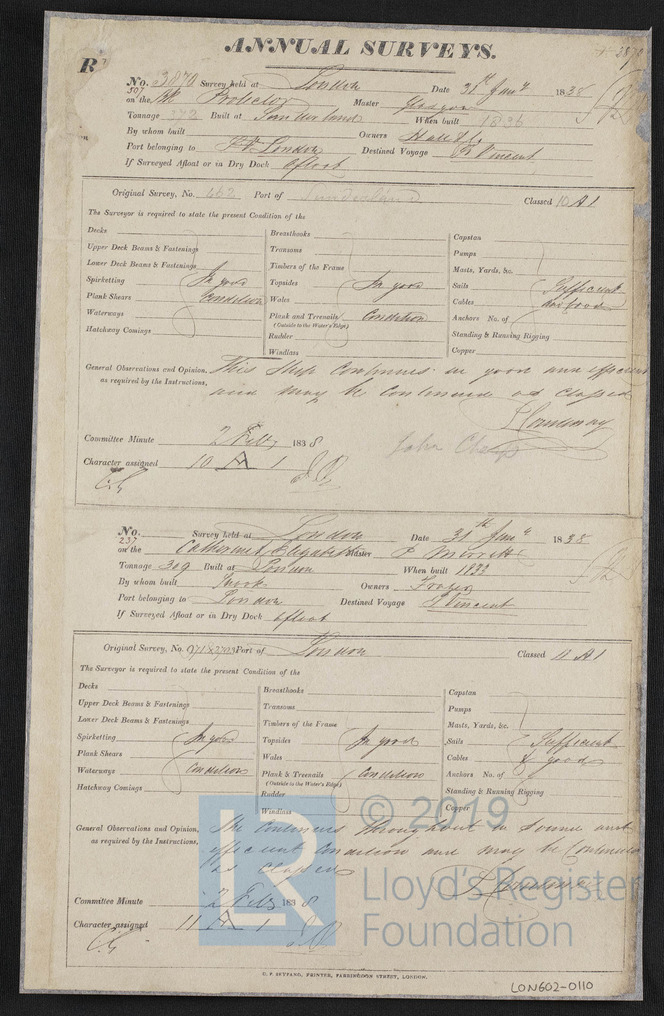 ANNUAL SURVEYS.
R
No. 3870 Survey held at London Date 31st Jany 1838
507
on the Protector Master
Tonnage 372 Built at Sunderland When built 1836
By whom built Owners Hall & Co
Port belonging to London Destined Voyage St Vincent
If Surveyed Afloat or in Dry Dock afloat
Original Survey, No. 662 Port of Sunderland Classed 10 A 1
The Surveyor is required to state the present Condition of the
Decks
Upper Deck Beams & Fastenings
Lower Deck Beams & Fastenings
Spirketting In good
Plank Shears Condition
Waterways
Hatchway Comings
Breasthooks
Transoms
Timbers of the Frame
Topsides In good
Wales
Plank and Treenails Condition
(Outside to the Water's Edge)
Rudder
Windlass
Capstan
Pumps
Masts, Yards, &c.
Sails Sufficient
Cables and good
Anchors No. of
Standing & Running Rigging
Copper
General Observations and Opinion, This Ship Continues in good and efficient
as required by the Instructions, and may be Continued as Classed
Committee Minute 2 Feby 1838
Character assigned 10 A 1
No. Survey held at London Date 31st Jany 1838
237
on the Catherine Elizabeth Master
Tonnage 309 Built at London When built 1833
By whom built Owners
Port belonging to London Destined Voyage St Vincent
If Surveyed Afloat or in Dry Dock afloat
Original Survey, No. Port of London Classed 11 A 1
The Surveyor is required to state the present Condition of the
Decks
Upper Deck Beams & Fastenings
Lower Deck Beams & Fastenings
Spirketting In good
Plank Shears
Waterways Condition
Hatchway Comings
Breasthooks
Transoms
Timbers of the Frame
Topsides In good
Wales
Plank & Treenails Condition
(Outside to the Water's Edge)
Rudder
Windlass
Capstan
Pumps
Masts, Yards, &c.
Sails Sufficient
Cables & good
Anchors No. of
Standing & Running Rigging
Copper
General Observations and Opinion, She Continues throughout in Sound and
as required by the Instructions, efficient Condition and may be Continued
as Classed
Committee Minute 2 Feby 1838
Character assigned 11 A 1
LR
© 2019
Lloyd's Register
Foundation
C. F. SEYFANG, PRINTER, FARRINGDON STREET, LONDON.
LON602-0110